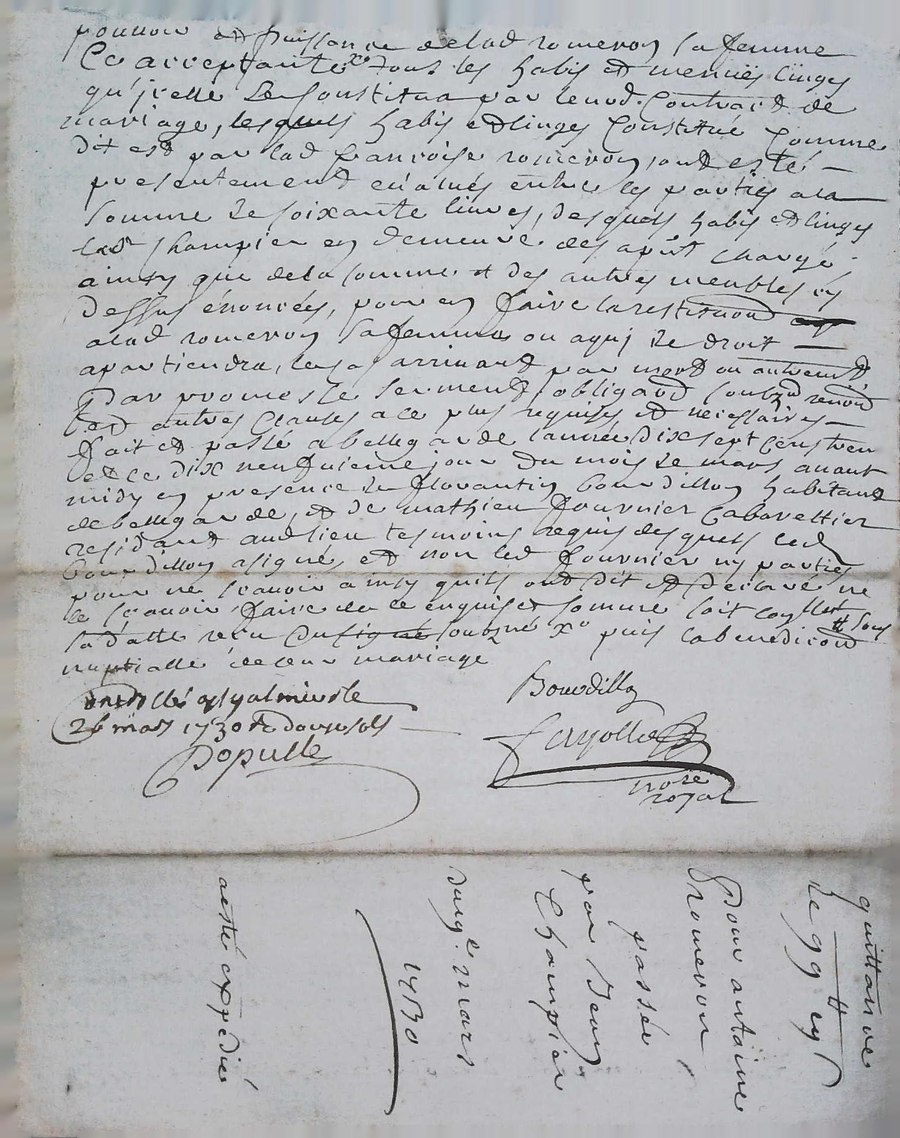 pouvoir et puissance de lad romeron sa femme
Ce acceptante tous les habis et menües linges
qu'jcelle Se Constitua par leurd. Contract de
mariage, lesquels habis et linges Constitué Comme
dit est par lad françoise romeron, ont esté
presentement estimés entre les parties a la
somme de soixante livres, desquels habis et linges
led. Champier en demeure des a pnt chargé
ainsy que de la somme et des autres meubles cy
dessus enoncées, pour en faire la restituon
a lad romeron sa femme ou a quj de droit
apartiendra, le cas arrivant par mort ou autremt
Par promesse serment obligaon soubzon renon
et autres Clauses a ce plus requises et necessaires
fait et passé a bellegarde l'année dix sept Cens tren
et ce dix neufuieme jour du mois de mars avant
midy en presence de florantin bourdillon habitant
de bellegarde, et de mathieu fournier Cabarettier
residant aud lieu tesmoins requis desquels led
bourdillon a signé et non led fournier ny parties
pour ne sçavoir ainsy quils ont dit et declaré ne
le sçavoir faire de ce enquis et somme soit Conllé sous
la datte soubzné xo puis la benediction
nuptialle de leur mariage
Controllé a St galmier le
26 mars 1730 R douze sols
Populle
Bourdillon
Fayolle
nore
royal
quittance
De 99 tt 15 s
Pour antoine
romeron,
passée
par Jean
Champier
du 19e mars
1730
a esté expedié